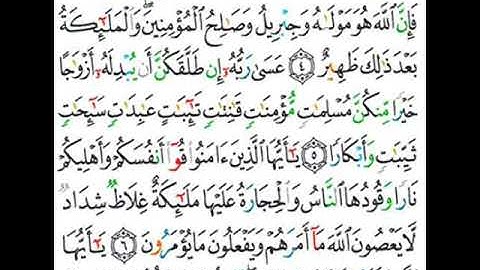 فَإِنَّ ٱللَّهَ هُوَ مَوْلَىٰهُ وَجِبْرِيلُ وَصَٰلِحُ ٱلْمُؤْمِنِينَ ۖ وَٱلْمَلَٰٓئِكَةُ
بَعْدَ ذَٰلِكَ ظَهِيرٌ ٤ عَسَىٰ رَبُّهُۥٓ إِن طَلَّقَكُنَّ أَن يُبْدِلَهُۥٓ أَزْوَٰجًا
خَيْرًا مِّنكُنَّ مُسْلِمَٰتٍ مُّؤْمِنَٰتٍ قَٰنِتَٰتٍ تَٰٓئِبَٰتٍ عَٰبِدَٰتٍ سَٰٓئِحَٰتٍ
ثَيِّبَٰتٍ وَأَبْكَارًا ٥ يَٰٓأَيُّهَا ٱلَّذِينَ ءَامَنُوا۟ قُوٓا۟ أَنفُسَكُمْ وَأَهْلِيكُمْ
نَارًا وَقُودُهَا ٱلنَّاسُ وَٱلْحِجَارَةُ عَلَيْهَا مَلَٰٓئِكَةٌ غِلَاظٌ شِدَادٌ
لَّا يَعْصُونَ ٱللَّهَ مَآ أَمَرَهُمْ وَيَفْعَلُونَ مَا يُؤْمَرُونَ ٦ يَٰٓأَيُّهَا